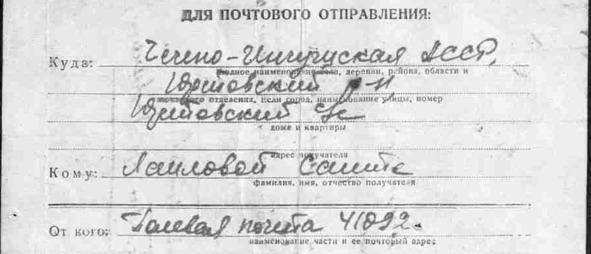 ДЛЯ ПОЧТОВОГО ОТПРАВЛЕНИЯ:
Куда: Чечено-Ингушская АССР,
полное наименование села, деревни, района, области и
р-н,
почтового отделения. Если город, наименование улицы, номер
с/с
дома и квартиры
адрес получателя
Кому:
фамилия, имя, отчество получателя
От кого: Полевая почта 41092.
наименование части и ее почтовый адрес